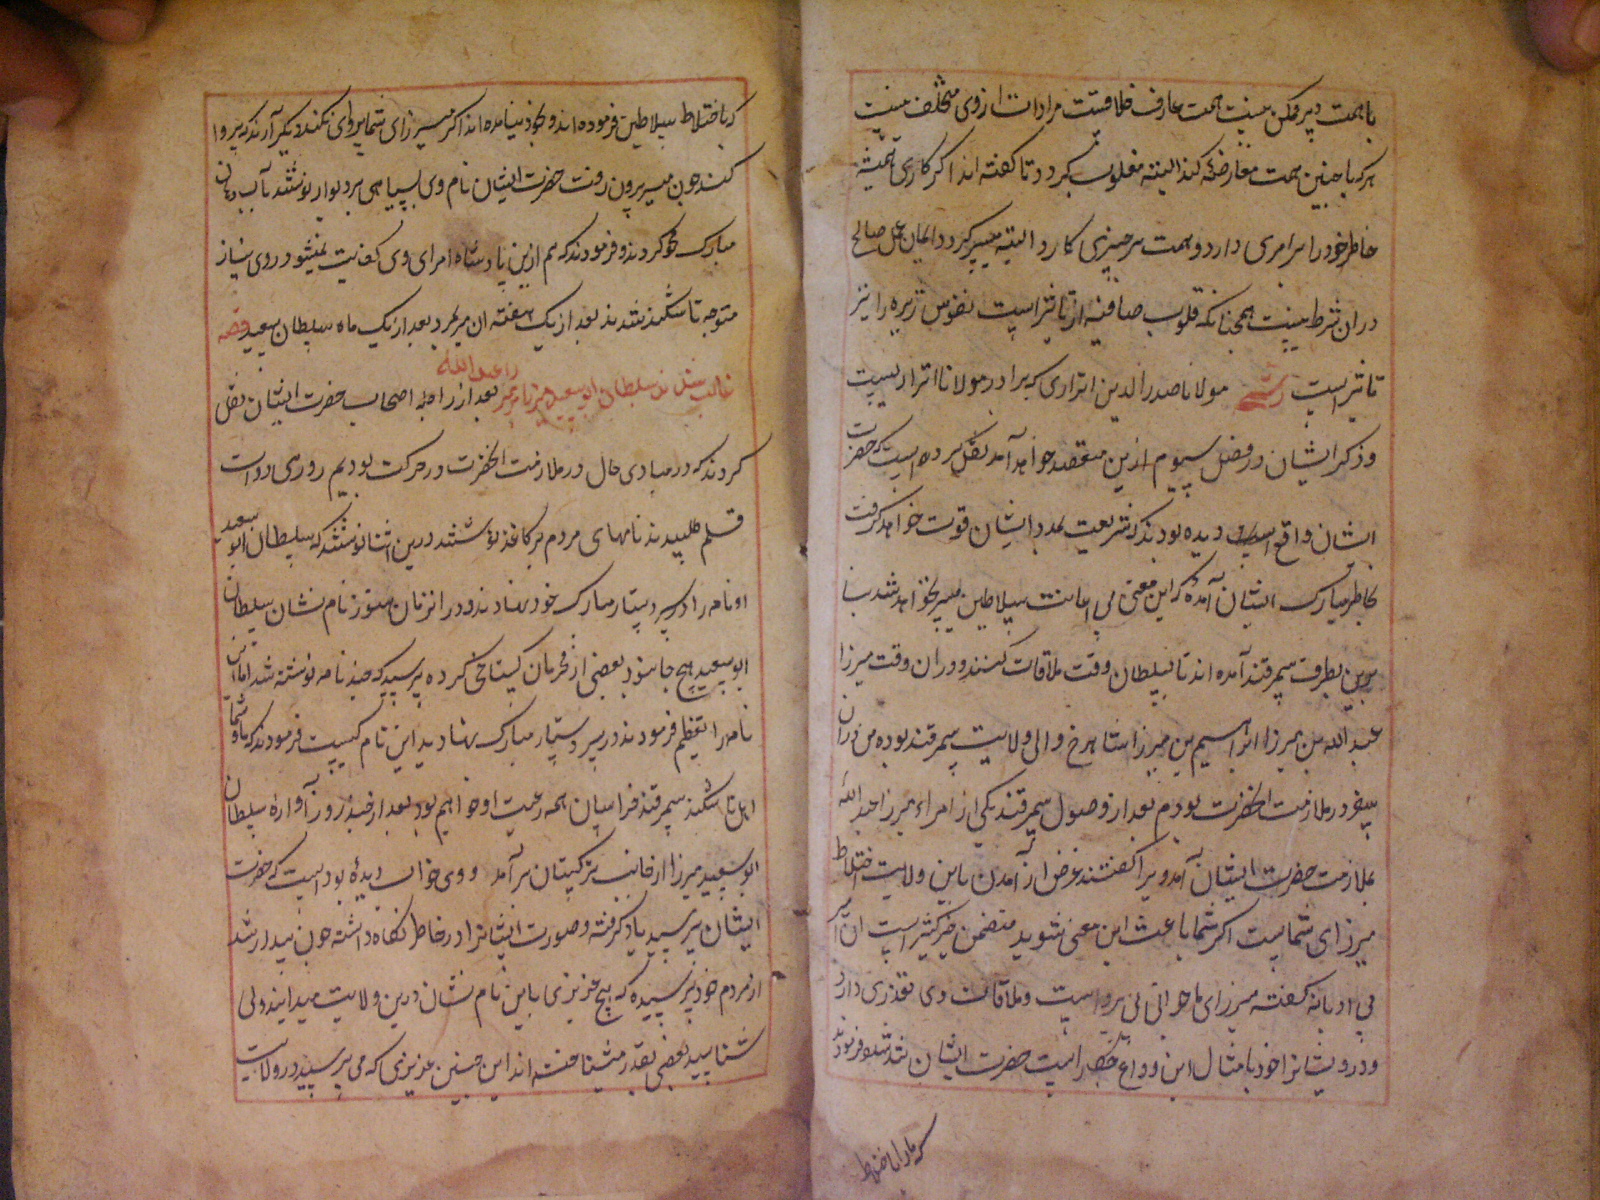 با همت دیر ممکن نیست همت عارف خلاقست مرادات از وی متخلف نیست
هر که با چنین همت معارضه کند البته مغلوب گردد تا گفته اند اگر کاری همیشه
خاطر خود را بر امری دارد و همت بر چیزی کارد البته میسر گردد ایمان و عمل صالح
در آن شرط نیست همچنانکه قلوب صافیه از تاثیر است نفوس شریره را نیز
تاثیر است رشحه مولانا صدر الدین اتراری که برادر مولانا اتراریست
و ذکر ایشان در فصل سیوم ازین مقصد خواهد آمد نقل کرده است که حضرت
ایشان واقع دیده بودند که شریعت بمدد ایشان قوت خواهد گرفت
بخاطر مبارک ایشان آمده که این معنی بی اعانت سلاطین میسر نخواهد شد بنا
برین بطرف سمرقند آمده اند تا بسلطان وقت ملاقات کنند و در آن وقت میرزا
عبد الله بن میرزا ابراهیم بن میرزا شاهرخ والی ولایت سمرقند بوده من در آن
سفر در ملازمت آنحضرت بودم بعد از وصول سمرقند یکی از امراء میرزا عبد الله
بملازمت حضرت ایشان آمد ویرا گفتند غرض از آمدن باین ولایت اختلاط
میرزای شماست اگر شما باعث این معنی شوید متضمن خیر کثیر است آن امیر
بی ادبانه گفته میرزای ما جوانی بی پرواست و ملاقات وی تعذری دارد
و درویشانرا خود با مثال این حضرت ایشان تند شده فرمودند
که ما را باختلاط
که باختلاط سلاطین فرموده اند و بخود نیامده اند اگر میرزای شما پروای نمیکند دیگر آرند که پروا
کند چون میر بیرون رفت حضرت ایشان نام وی بسیاهی بر دیوار نوشتند بآب دهان
مبارک محو کردند و فرمودند که مهم ازین پادشاه و امرای وی کفایت نمیشود و روی بنیاز
متوجه تاشکند شدند بعد از یک هفته آن میر بمرد بعد از یک ماه سلطان سعید قصه
غالب شدن سلطان ابو سعید میرزا بر میرزا عبد الله بعد از زایله اصحاب حضرت ایشان نقل
کردند که در مبادی حال در ملازمت آنحضرت در حرکت بودیم روزی دوات
قلم طلبیدند نامهای مردم بر کاغذ نوشتند درین اثنا نوشتند که سلطان ابو سعید
و نام را در سر دستار مبارک خود نهادند و در آن زمان هنوز نام نشان سلطان
ابو سعید هیچ جا نبود بعضی از محرمان گستاخی کرده پرسید که چند نامه نوشته شد اما این
نام را تعظیم فرمودند در سر دستار مبارک نهادید این نام کیست فرمودند که ما و شما
اهل تاشکند سمرقند خراسان همه رعیت او خواهیم بود بعد از چند روز آوازه سلطان
ابو سعید میرزا از جانب ترکستان بر آمد و وی خواب دیده بوده است که حضرت
ایشان پرسید یاد گرفته و صورت ایشانرا در خاطر نگاه داشته چون بیدار شد
از مردم خود پرسیده که هیچ عزیزی باین نام نشان درین ولایت میدانید ولی
شناسید بعضی بقدر میشناخته اند این چنین عزیزی که می پرسید در ولایت